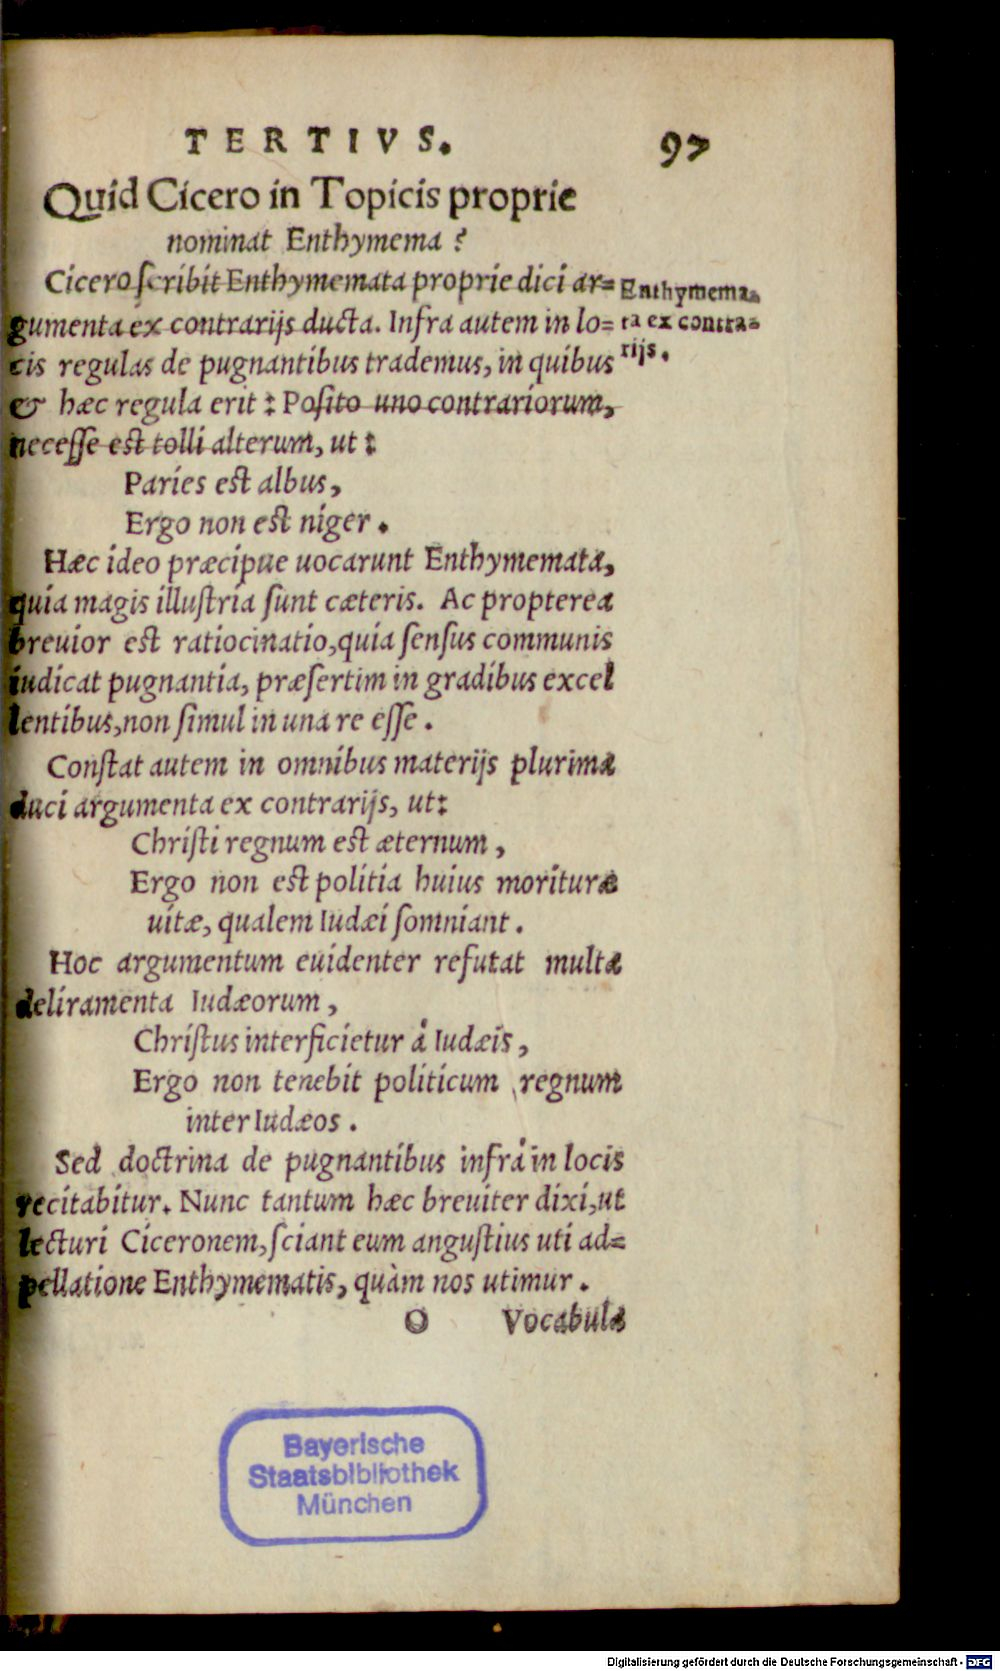 TERTIVS. 97
Quid Cicero in Topicis proprie
nominat Enthymema?
Cicero ſcribit Enthymemata proprie dici ar=
gumenta ex contrarijs ducta. Infra autem in lo=
cis regulas de pugnantibus trademus, in quibus
& hæc regula erit: Poſito uno contrariorum,
neceſſe est tolli alterum, ut:
Enthymema=
ta ex contra=
rijs.
Paries est albus,
Ergo non est niger.
Hæc ideo præcipue uocarunt Enthymemata,
quia magis illuſtria ſunt cæteris. Ac propterea
breuior est ratiocinatio, quia ſenſus communis
iudicat pugnantia, præſertim in gradibus excel
lentibus, non ſimul in una re eſſe.
Conſtat autem in omnibus materijs plurima
duci argumenta ex contrarijs, ut:
Chriſti regnum est æternum,
Ergo non est politia huius morituræ
uitæ, qualem Iudæi ſomniant.
Hoc argumentum euidenter refutat multa
deliramenta Iudæorum,
Chriſtus interficietur å Iudæis,
Ergo non tenebit politicum regnum
inter Iudæos.
Sed doctrina de pugnantibus infrå in locis
recitabitur. Nunc tantum hæc breuiter dixi, ut
lecturi Ciceronem, ſciant eum anguſtius uti ad=
pellatione Enthymematis, quàm nos utimur.
O Vocabula
Bayerische
Staatsbibliothek
München
Digitalisierung gefördert durch die Deutsche Forschungsgemeinschaft - DFG